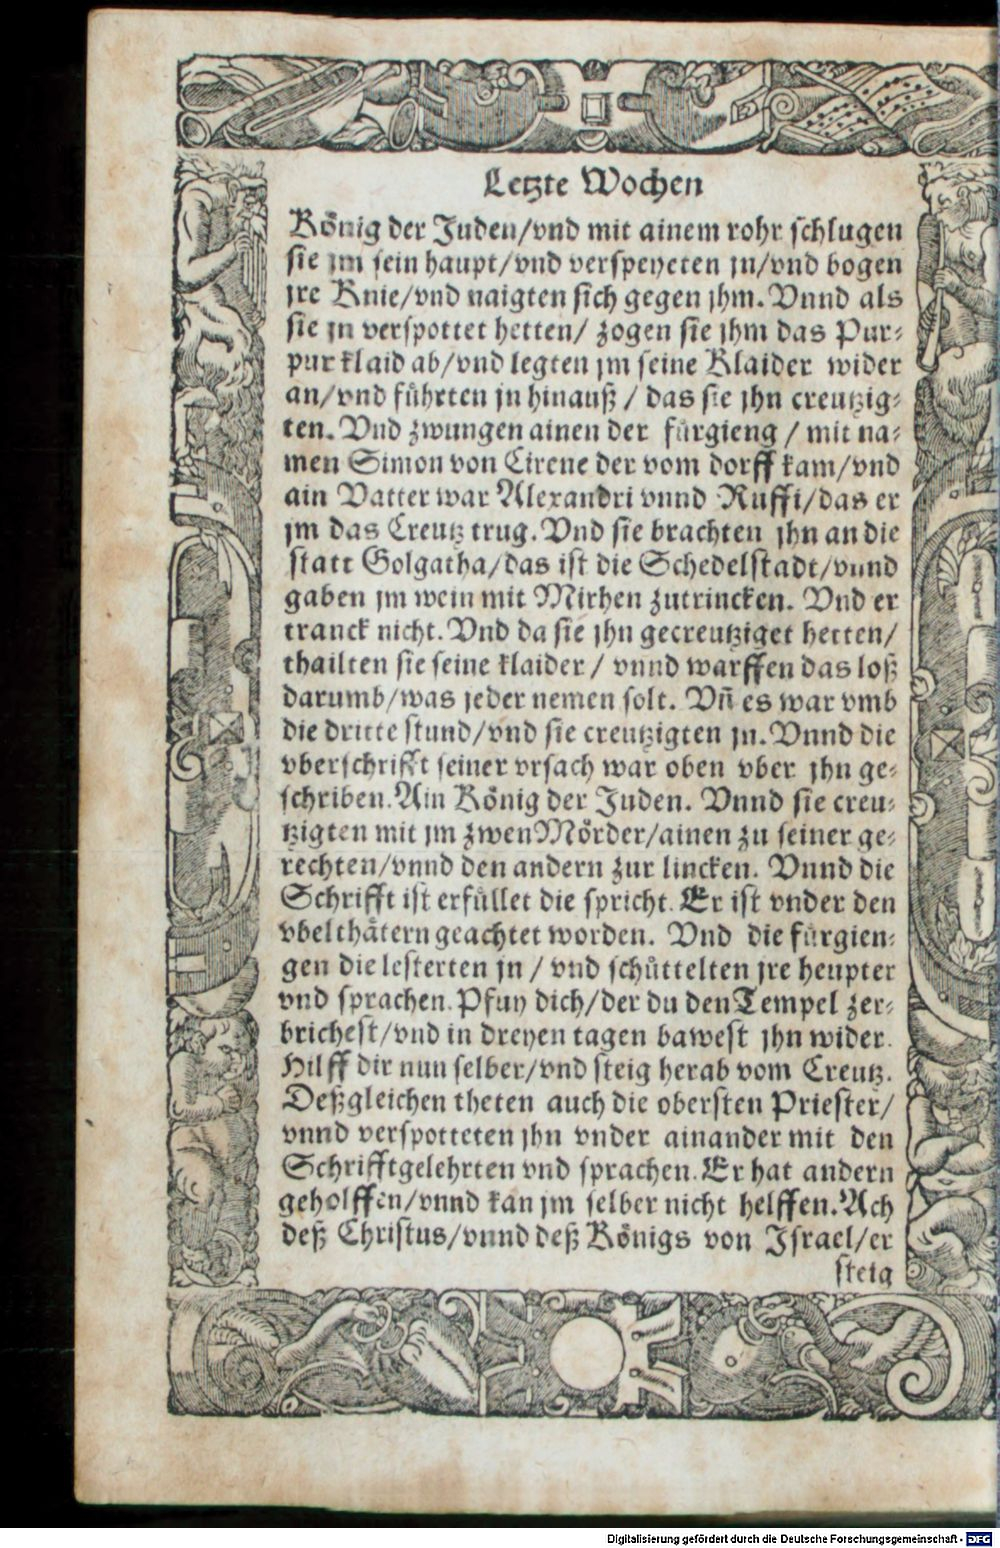 Letzte Wochen
König der Juden/vnd mit ainem rohr schlugen
sie jm sein haupt/vnd verspeyeten jn/vnd bogen
jre Knie/vnd naigten sich gegen jhm. Vnnd als
sie jn verspottet hetten/ zogen sie jhm das Pur-
pur klaid ab/vnd legten jm seine Klaider wider
an/vnd fůhrten jn hinauß / das sie jhn creutzig-
ten. Vnd zwungen ainen der fůrgieng / mit na-
men Simon von Cirene der vom dorff kam/vnd
ain Vatter war Alexandri vnnd Ruffi/das er
jm das Creutz trug. Vnd sie brachten jhn an die
statt Golgatha/das ist die Schedelstadt/vnnd
gaben jm wein mit Mirhen zutrincken. Vnd er
tranck nicht. Vnd da sie jhn gecreutziget hetten/
thailten sie seine klaider / vnnd warffen das loß
darumb/was jeder nemen solt. Vñ es war vmb
die dritte stund/vnd sie creutzigten jn. Vnnd die
vberschrifft seiner vrsach war oben vber jhn ge-
schriben. Ain König der Juden. Vnnd sie creu-
tzigten mit jm zwen Mörder/ainen zu seiner ge-
rechten/vnnd den andern zur lincken. Vnnd die
Schrifft ist erfůllet die spricht. Er ist vnder den
vbelthätern geachtet worden. Vnd die fůrgien-
gen die lesterten jn / vnd schůttelten jre heupter
vnd sprachen. Pfuy dich/der du den Tempel zer-
brichest/vnd in dreyen tagen bawest jhn wider.
Hilff dir nun selber/vnd steig herab vom Creutz.
Deßgleichen theten auch die obersten Priester/
vnnd verspotteten jhn vnder ainander mit den
Schrifftgelehrten vnd sprachen. Er hat andern
geholffen/vnnd kan jm selber nicht helffen. Ach
deß Christus/vnnd deß Königs von Israel/er
steig
Digitalisierung gefördert durch die Deutsche Forschungsgemeinschaft - DFG